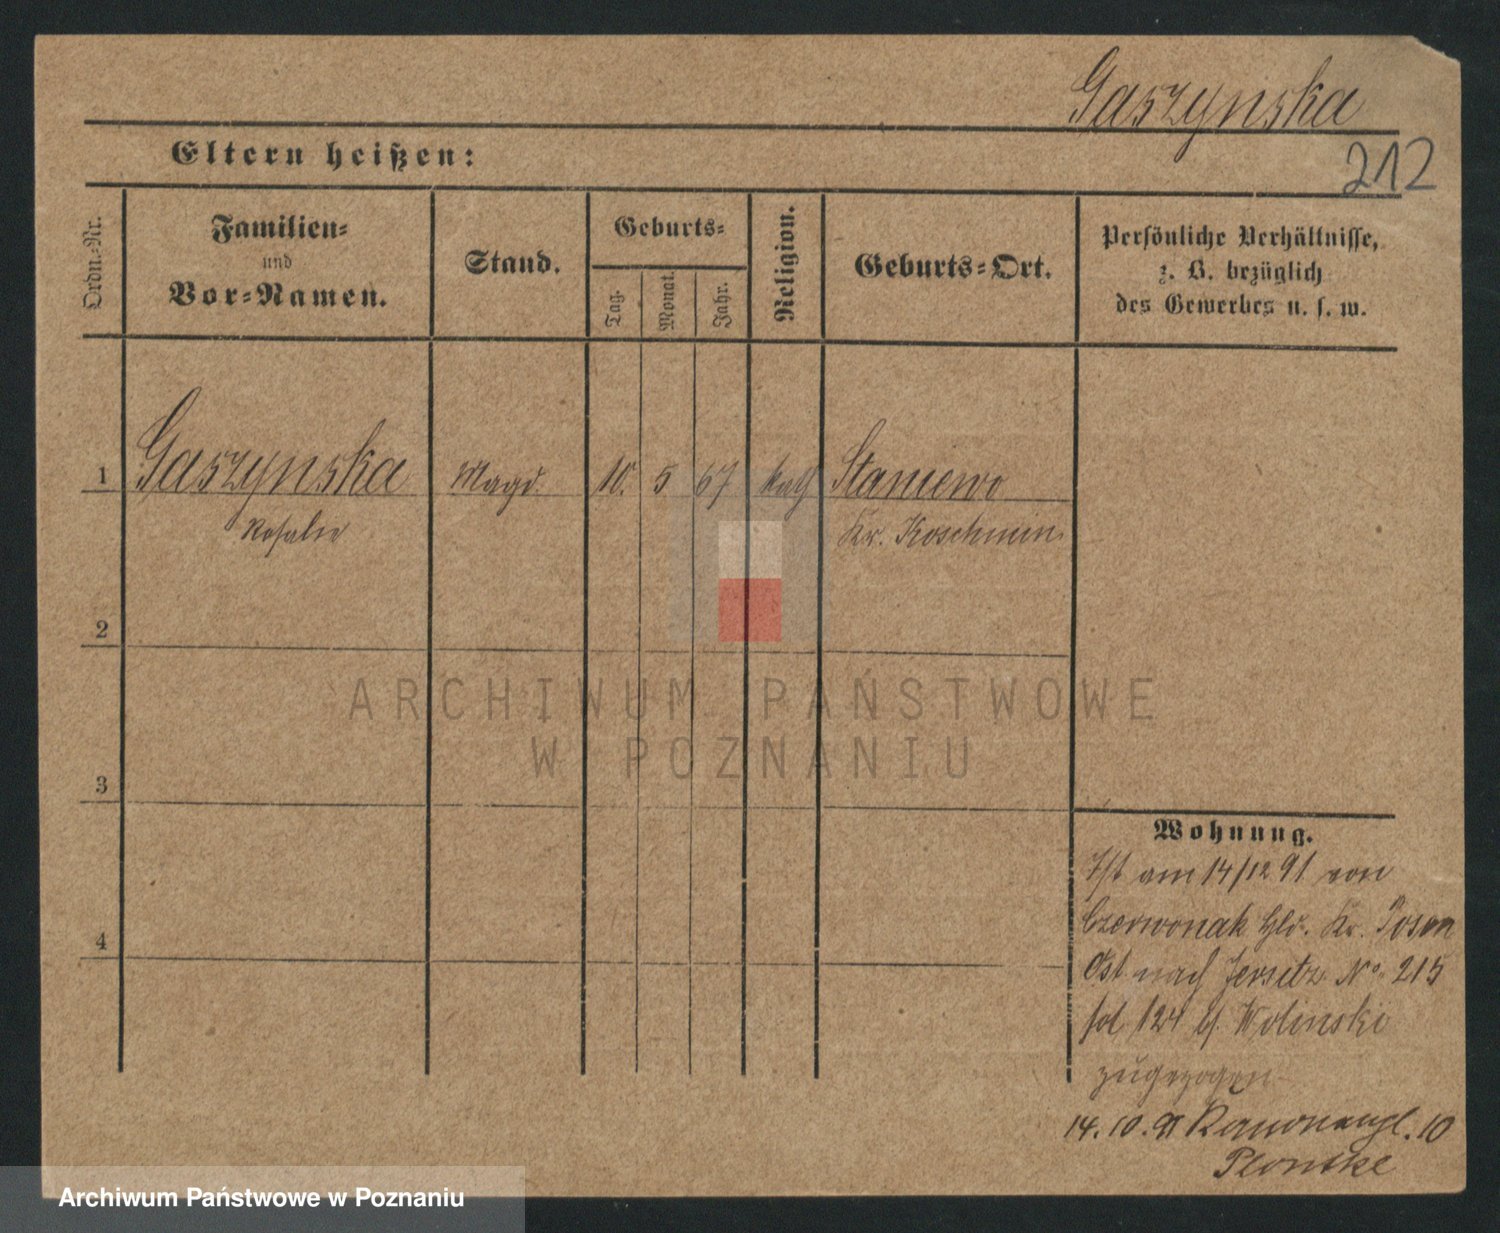 Gaszynska
212
Eltern heißen:
Ordn.-Nr.
Familien- und Vor-Namen.
Stand.
Geburts-
Tag.
Monat.
Jahr.
Religion.
Geburts-Ort.
Persönliche Verhältnisse,
z. B. bezüglich
des Gewerbes u. s. w.
1 Gaszynska Magd. 10. 5 67 kath Staniewo
Rosalie Kr. Koschmin
2
3
4
Wohnung.
Ist am 14/12 91 von
Czerwonak Kr. Posen
Ost nach Jersitz No 215
fol 124 b/ Wolinski
zugezogen
14. 10. 10
ARCHIWUM PAŃSTWOWE
W POZNANIU
Archiwum Państwowe w Poznaniu